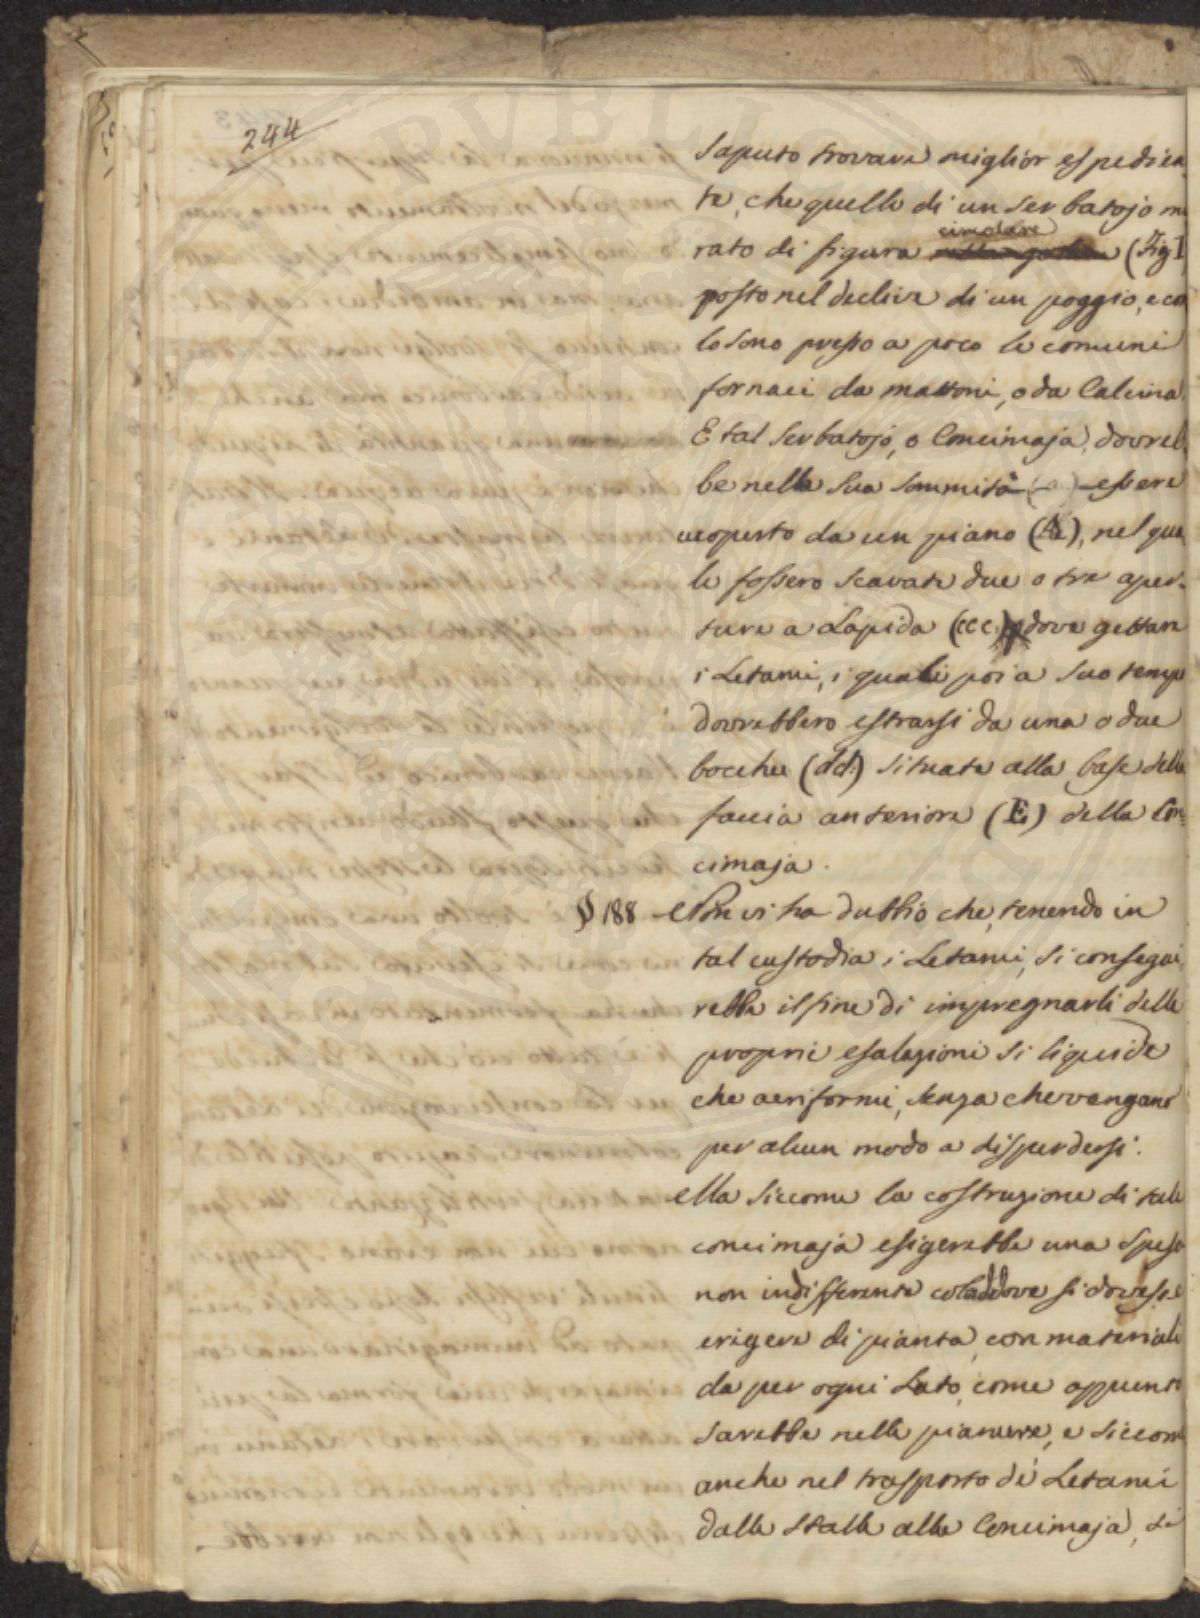 244
saputo trovare miglior espedien
te, che quello di un serbatojo mu
rato di figura circolare (Fig I
posto nel declive di un poggio, e co
lo sono presso a poco le comuni
fornaci da mattoni, o da Calcina.
E tal serbatojo, o Concimaja, dovreb
be nella sua sommità essere
ricoperto da un piano (A), nel qua
le fossero scavate due o tre aper-
ture a Lapida (ccc) dove gettare
i Letami, i quali poi a suo temp
dovrebbero estrarsi da una o due
bocche (dd.) situate alla base della
faccia anteriore (E) della Con-
cimaja.
§ 188 Non vi ha dubbio che, tenendo in
tal custodia i Letami, si consegui,
rebbe il fine di impregnarli delle
proprie esalazioni si liquide
che aeriformi, senza che vengano
per alcun modo a disperdersi.
Ma siccome la costruzione di tale
concimaja esigerebbe una spesa
non indifferente coladdove si dovesse
erigere di pianta, con materiali
da per ogni Lato, come appunto
sarebbe nelle pianure, e siccome
anche nel trasporto dei Letami
dalle stalle alla Concimaja, si